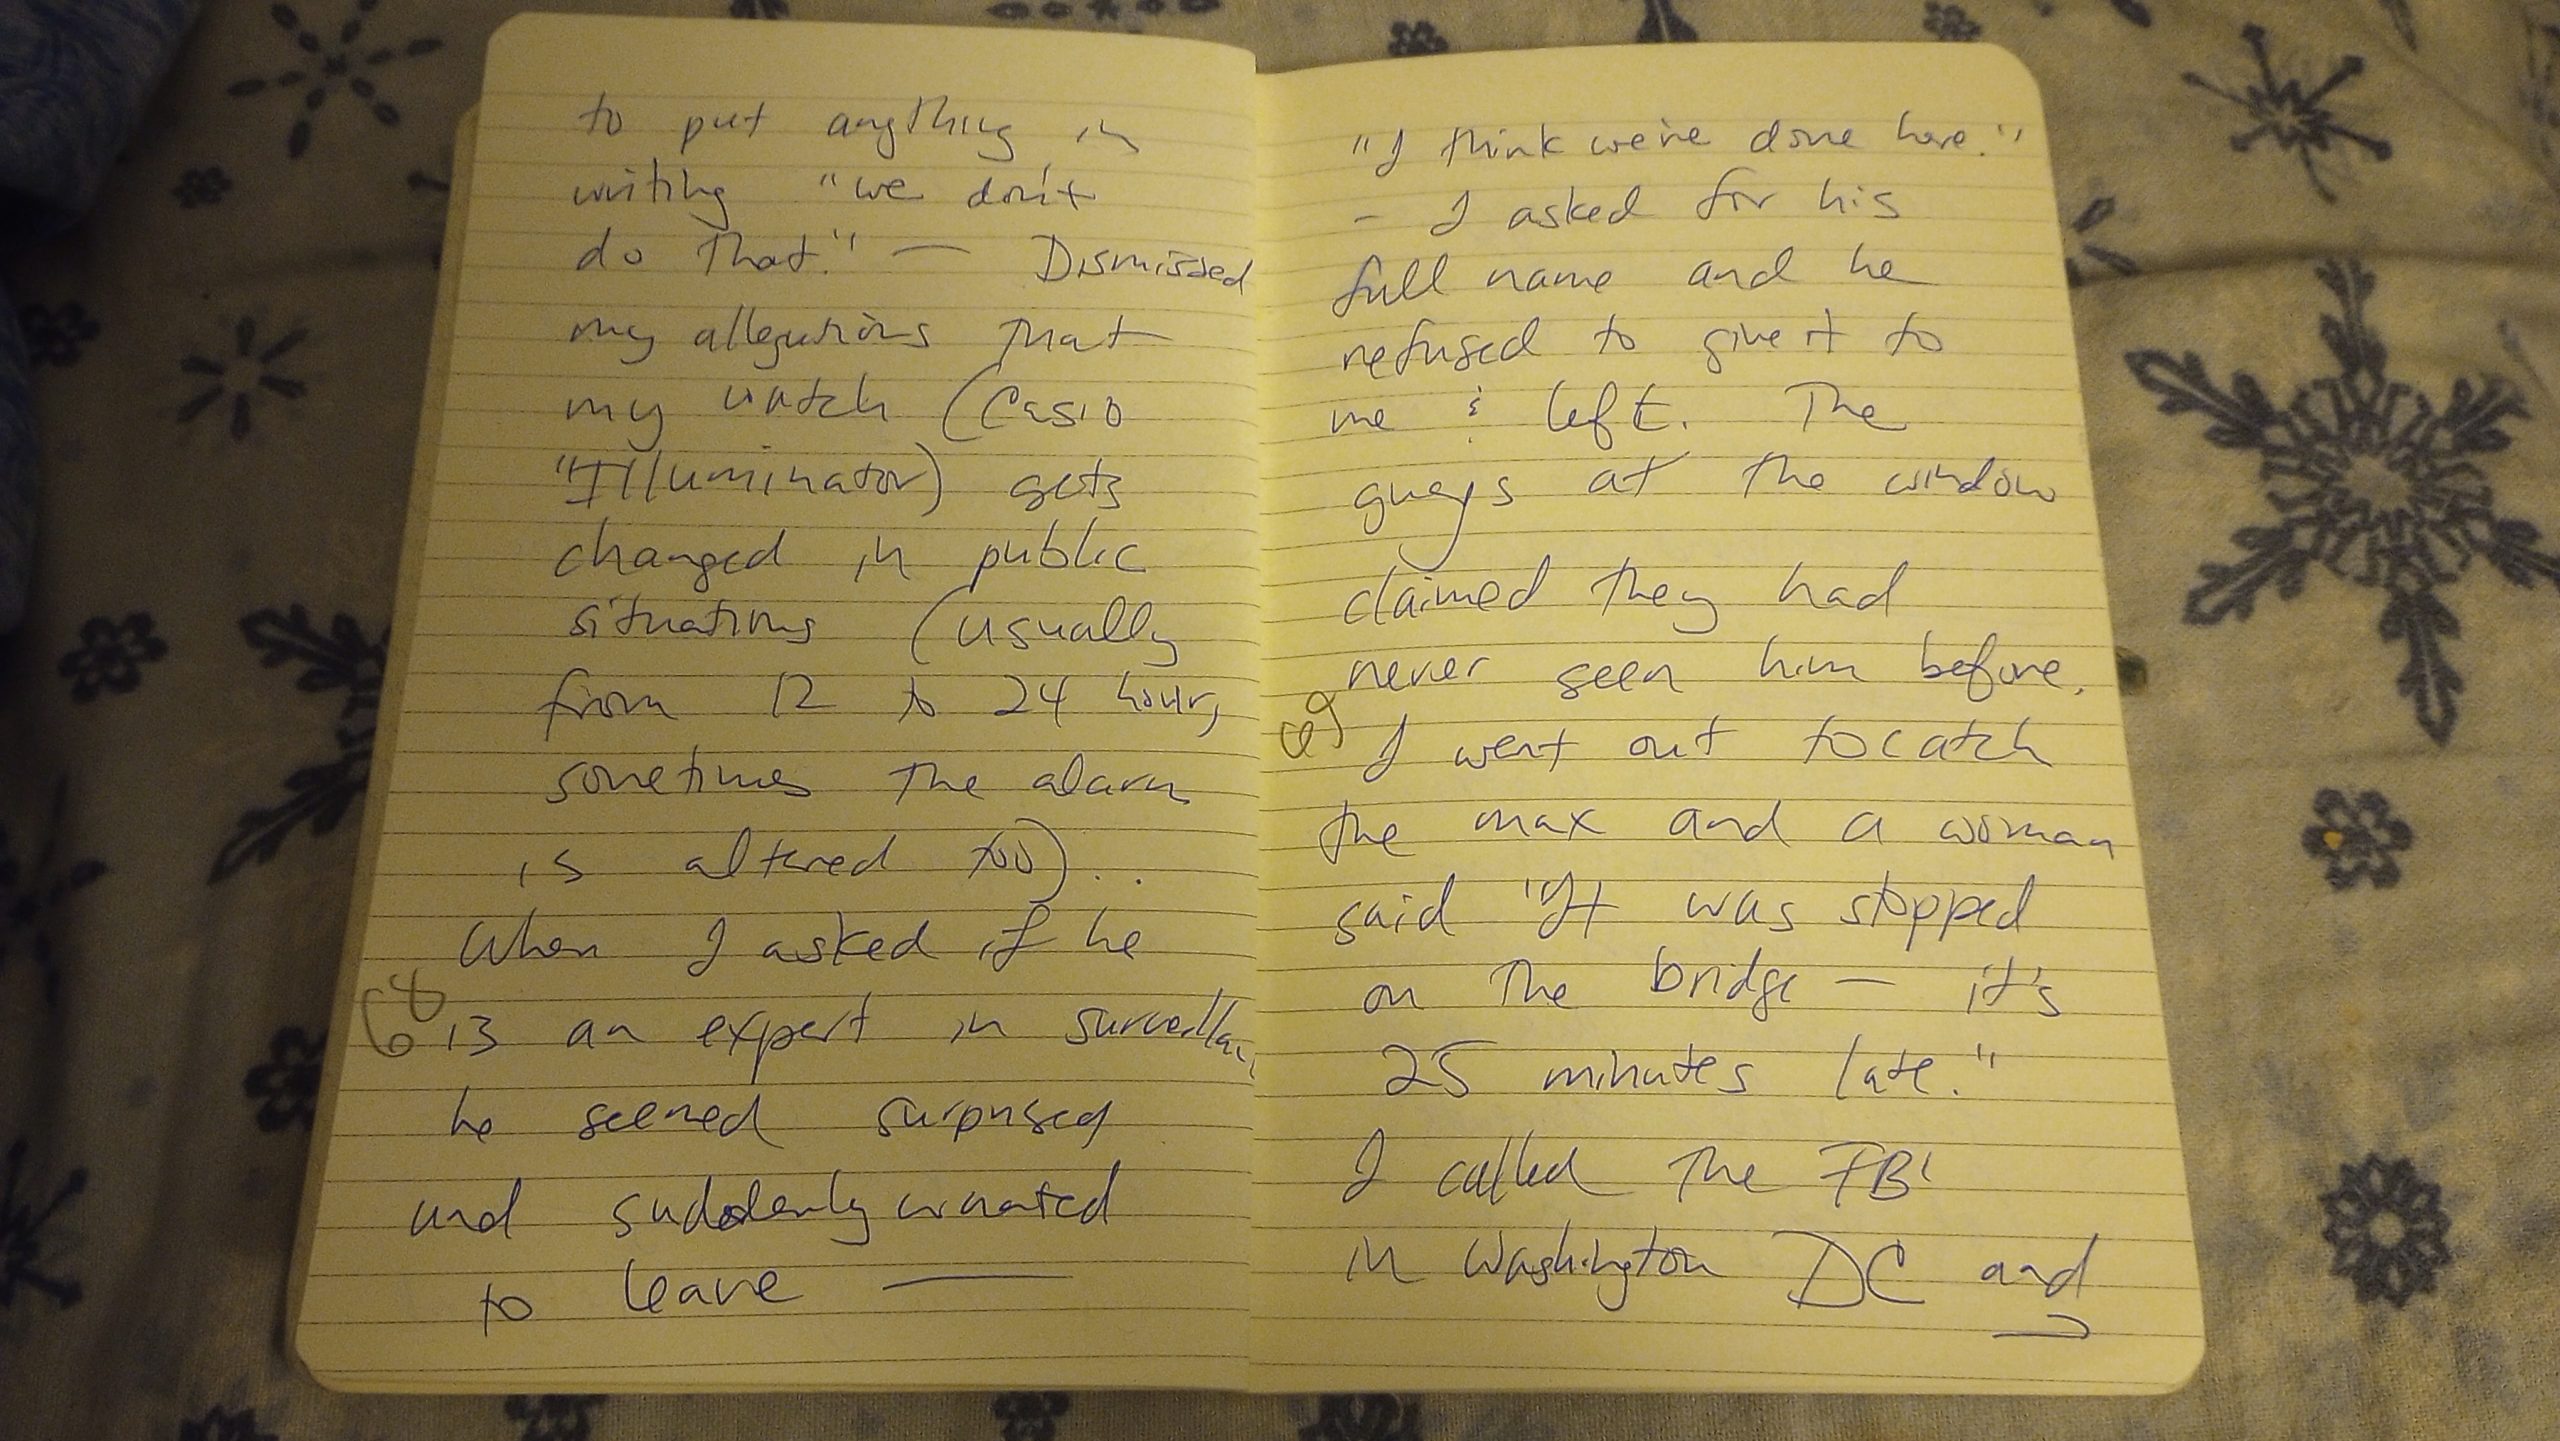 to put anything in
writing "we don't
do that." — Dismissed
my allegations that
my watch (Casio
"Illuminator) gets
changed in public
situations (usually
from 12 to 24 hour,
sometimes the alarm
is altered too)..
When I asked if he
is an expert in
he seemed surprised
and suddenly wanted
to leave —
68
"I think we're done here."
- I asked for his
full name and he
refused to give it to
me & left. The
guys at the window
claimed they had
never seen him before.
I went out to catch
the max and a woman
said "It was stopped
on the bridge — it's
25 minutes late."
I called the FBI
in Washington DC and
69